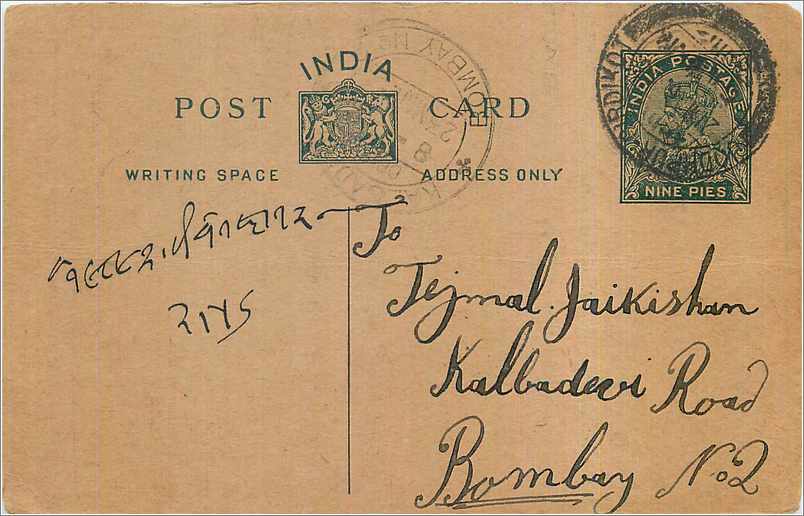 INDIA
POST CARD
WRITING SPACE
ADDRESS ONLY
INDIA POSTAGE
NINE PIES
BOMBAY
To
Tejmal. Jaikishan
Kalbadevi Road
Bombay No 2